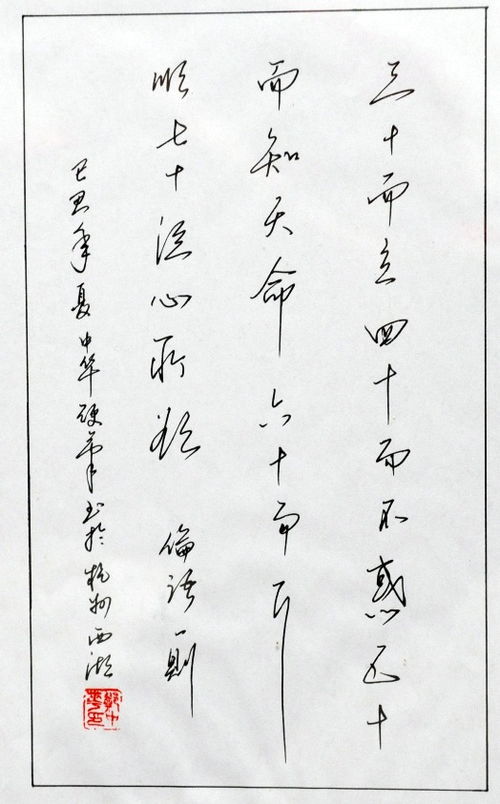 三十而立四十而不惑五十
而知天命六十而耳
順七十從心所欲 倫語一則
己丑年夏中华硬筆书於杭州西湖